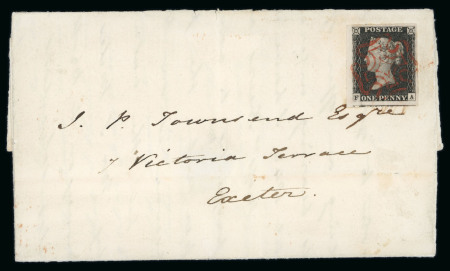 POSTAGE
F A
ONE PENNY
J. P. Townsend Esqre
7 Victoria Terrace
Exeter.